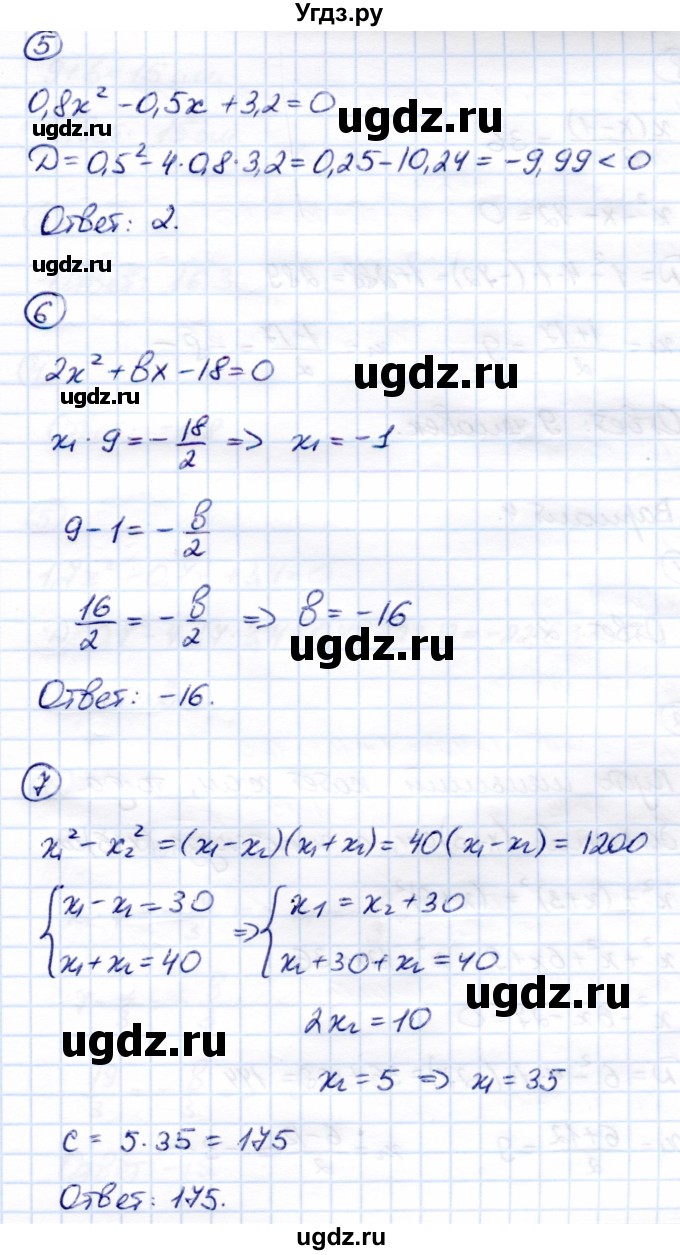 Угдз.ру
5
0,8x² - 0,5x + 3,2 = 0
ugdz.ru
ugdz.ru
D = 0,5² - 4·0,8·3,2 = 0,25 - 10,24 = -9,99 < 0
Ответ: 2.
ugdz.ru
6
2x² + вx - 18 = 0
ugdz.ru
ugdz.ru
x₁ · 9 = - 18/2 => x₁ = -1
9 - 1 = - в/2
16/2 = - в/2 => в = -16
ugdz.ru
Ответ: -16.
7
x₁² - x₂² = (x₁ - x₂)(x₁ + x₂) = 40(x₁ - x₂) = 1200
{ x₁ - x₂ = 30 => { x₁ = x₂ + 30
x₁ + x₂ = 40 x₂ + 30 + x₂ = 40
ugdz.ru
ugdz.ru
2x₂ = 10
x₂ = 5 => x₁ = 35
c = 5·35 = 175
Ответ: 175.
ugdz.ru